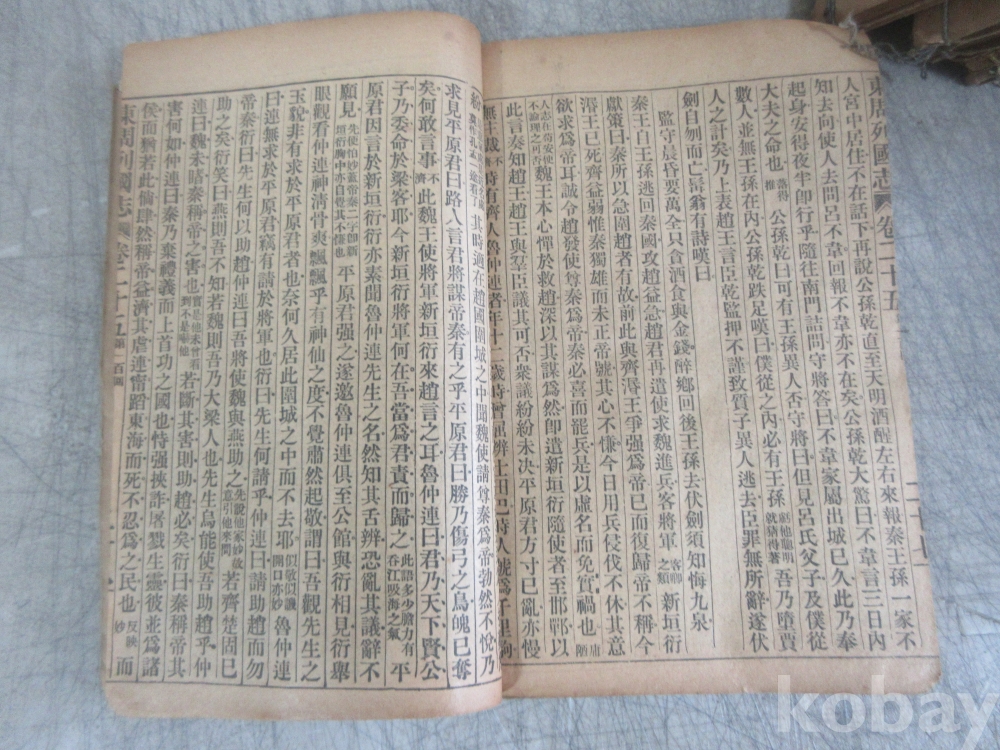 東周列國志 卷二十五
人宮中居住不在話下再說公孫乾直至天明酒醒左右來報秦王孫一家不
知去向使人去問呂不韋回報不韋亦不在矣公孫乾大驚曰不韋言三日內
起身安得夜半卽行乎隨往南門詰問守將答曰不韋家屬出城已久此乃奉
大夫之命也 公孫乾曰可有王孫異人否守將曰但見呂氏父子及僕從
數人並無王孫在內公孫乾跌足嘆曰僕從之內必有王孫 吾乃墮賈
人之計矣乃上表趙王言臣乾監押不謹致質子異人逃去臣罪無所辭遂伏
劍自刎而亡髯翁有詩嘆曰
監守晨昏要萬全只貪酒食與金錢醉鄉回後王孫去伏劍須知悔九泉
秦王自王孫逃回秦國攻趙益急趙君再遣使求魏進兵客將軍 新垣衍
獻策曰秦所以急圍趙者有故前此與齊湣王爭强爲帝已而復歸帝不稱今
湣王已死齊益弱惟秦獨雄而未正帝號其心不慊今日用兵侵伐不休其意
欲求爲帝耳誠令趙發使尊秦爲帝秦必喜而罷兵是以虛名而免實禍也
魏王本心憚於救趙深以其謀爲然卽遣新垣衍隨使者至邯鄲以
此言奏知趙王趙王與羣臣議其可否衆議紛紛未決平原君方寸已亂亦慢
無主裁 時有齊人魯仲連者年十二歲時曾
其時適在趙國圍城之中聞魏使請尊秦爲帝勃然不悅乃
求見平原君曰路人言君將謀帝秦有之乎平原君曰勝乃傷弓之鳥魄已奪
矣何敢言事 此魏王使將軍新垣衍來趙言之耳魯仲連曰君乃天下賢公
子乃委命於梁客耶今新垣衍將軍何在吾當爲君責而歸之 平
原君因言於新垣衍衍亦素聞魯仲連先生之名然知其舌辨恐亂其議辭不
願見 平原君强之遂邀魯仲連俱至公館與衍相見衍舉
眼觀看仲連神清骨爽飄飄乎有神仙之度不覺肅然起敬謂曰吾觀先生之
玉貌非有求於平原君者也奈何久居此圍城之中而不去耶 魯仲連
曰連無求於平原君竊有請於將軍也衍曰先生何請乎仲連曰請助趙而勿
帝秦衍曰先生何以助趙仲連曰吾將使魏與燕助之 若齊楚固已
助之矣衍笑曰燕則吾不知若魏則吾乃大梁人也先生烏能使吾助趙乎仲
連曰魏未睹秦稱帝之害也 若睹其害則助趙必矣衍曰秦稱帝其
害何如仲連曰秦乃棄禮義而上首功之國也恃强挾詐屠戮生靈彼並爲諸
侯而猶若此倘肆然稱帝益濟其虐連寧蹈東海而死不忍爲之民也 而
東周列國志